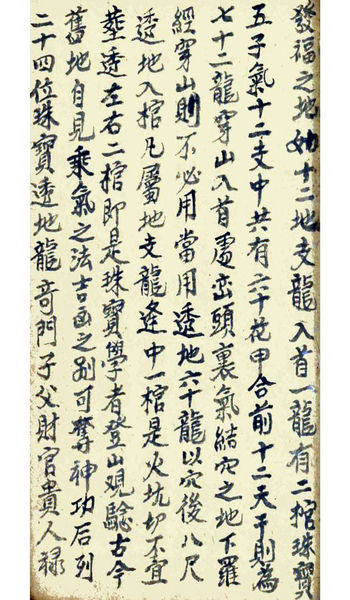 發福之地如十二地支龍入首一龍有二棺珠寶
五子氣十二支中共有六十花甲合前十二天干則為
七十二龍穿山入首處巒頭裏氣結穴之地下羅
經穿山則不必用當用透地六十龍以穴後八尺
透地入棺凡屬地支龍逢中一棺是火坑切不宜
塟透左右二棺即是珠寶學者登山观驗古今
舊地自見乘氣之法吉凶之别可奪神功后列
二十四位珠寶透地龍奇門子父財官貴人祿